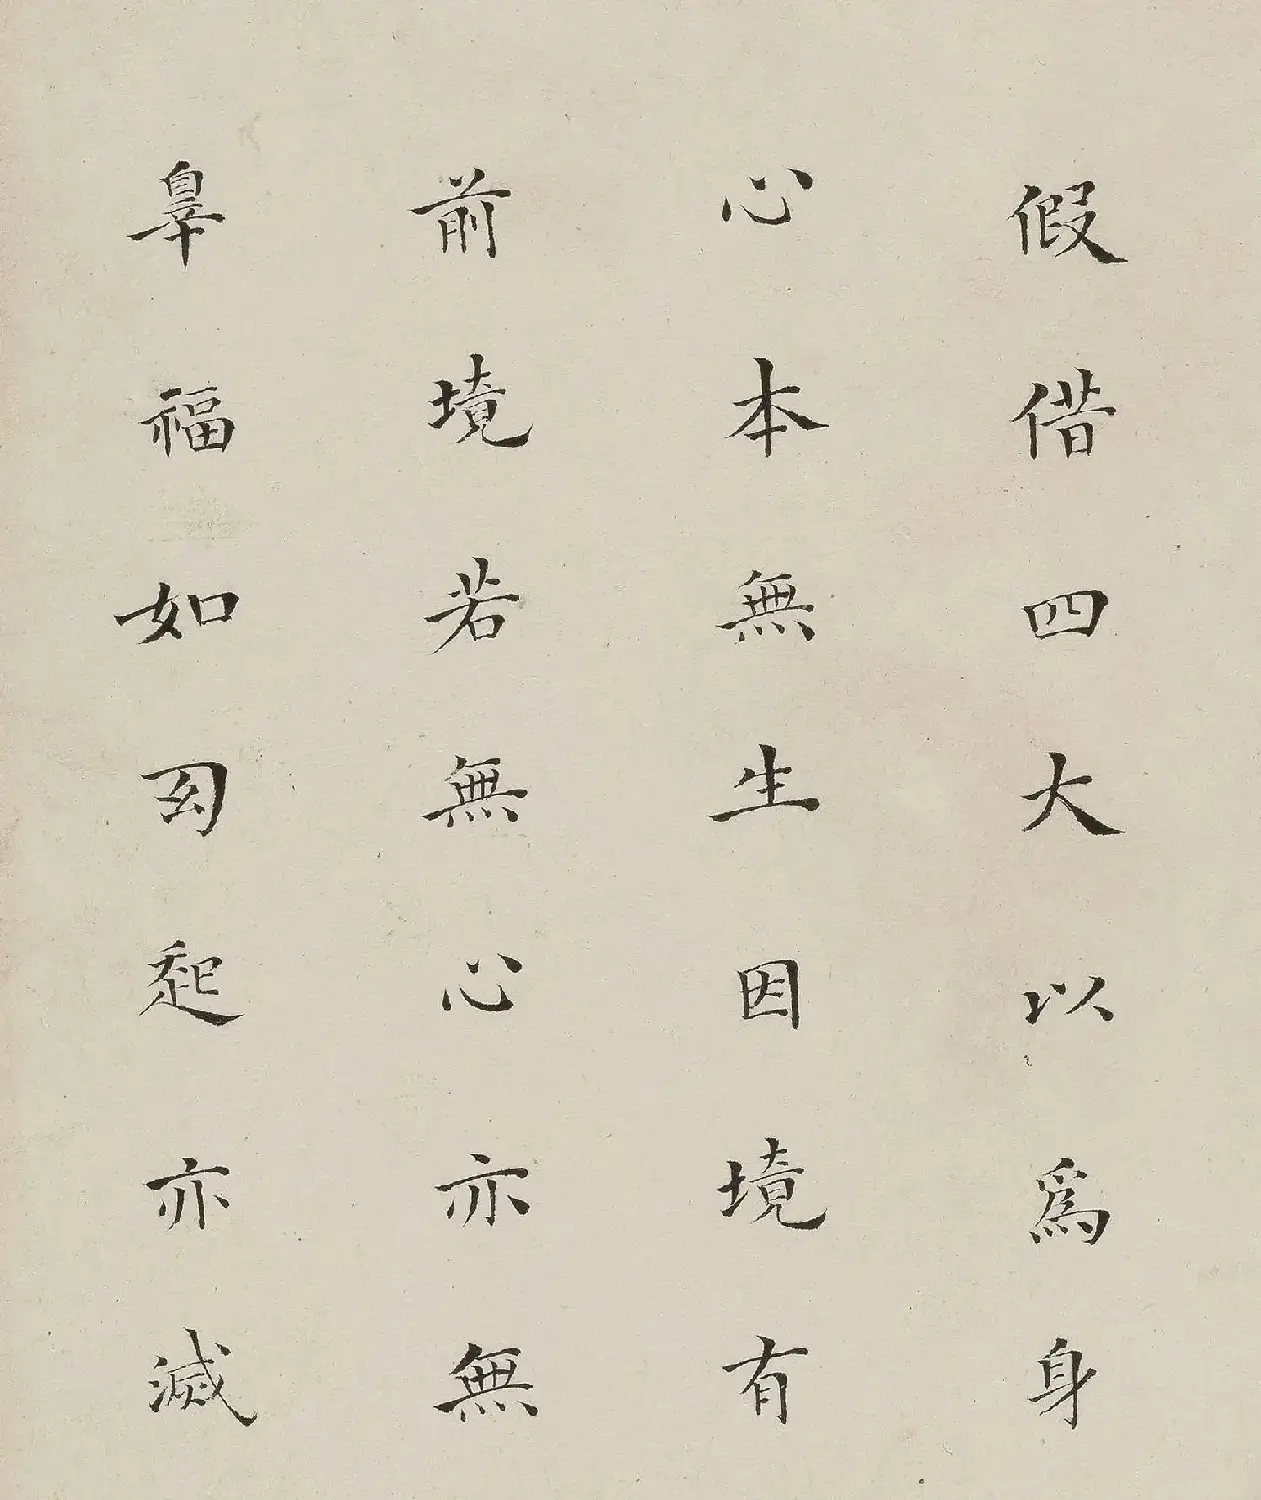 假借四大以為身
心本無生因境有
前境若無心亦無
辠福如幻起亦滅